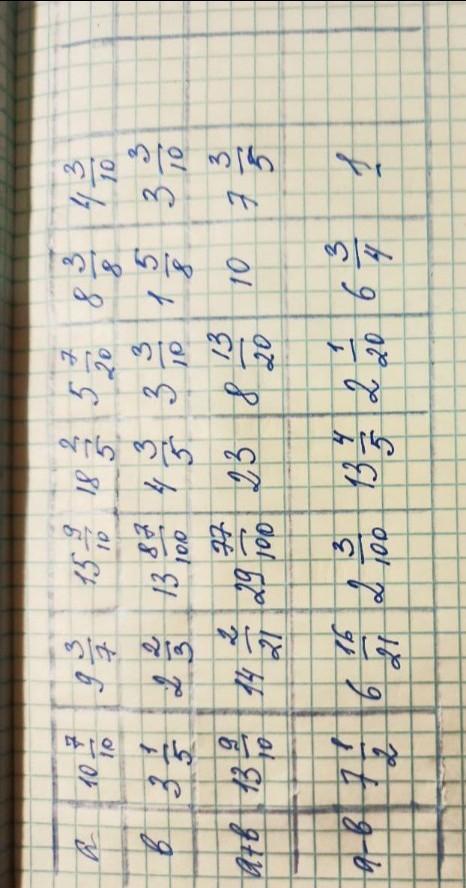 a 10 7/10 9 3/7 15 9/10 18 2/5 5 7/20 8 3/8 4 3/10
в 3 1/5 2 2/3 13 87/100 4 3/5 3 3/10 1 5/8 3 3/10
a+в 13 9/10 14 2/21 29 77/100 23 8 13/20 10 7 3/5
a-в 7 1/2 6 16/21 2 3/100 13 4/5 2 1/20 6 3/4 1